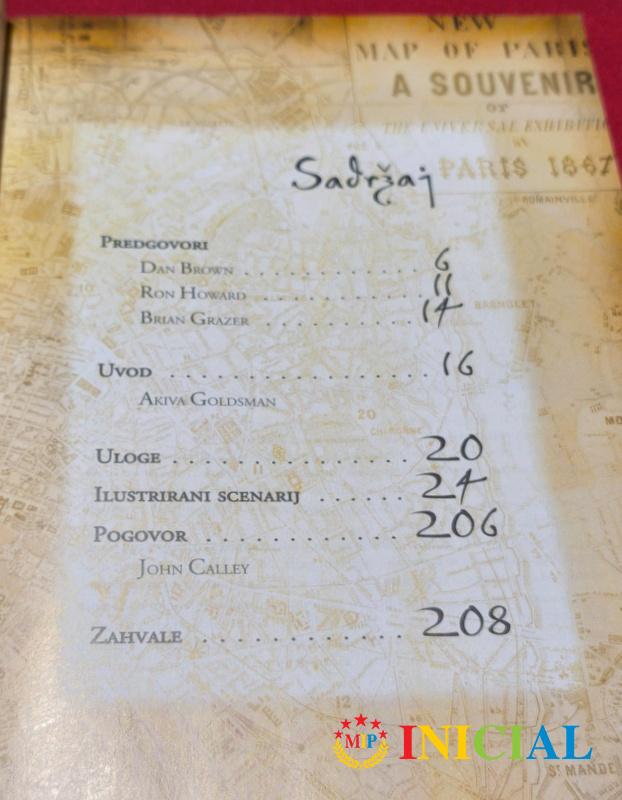 NEW
MAP OF PARIS
A SOUVENIR
OF
THE UNIVERSAL EXHIBITION
PARIS 1867
ROMAINVILLE
Sadržaj
PREDGOVORI
DAN BROWN . . . . . . . . . . . . . . . . 6
RON HOWARD . . . . . . . . . . . . . . . 11
BRIAN GRAZER . . . . . . . . . . . . 14
BAGNOLET
UVOD . . . . . . . . . . . . . . . . . . 16
AKIVA GOLDSMAN
20
CHARONNE
ULOGE . . . . . . . . . . . . . . . . 20
ILUSTRIRANI SCENARIJ . . . . . . 24
POGOVOR . . . . . . . . . . . . . 206
JOHN CALLEY
ZAHVALE . . . . . . . . . . . . . 208
12
MP INICIAL
ST MANDE